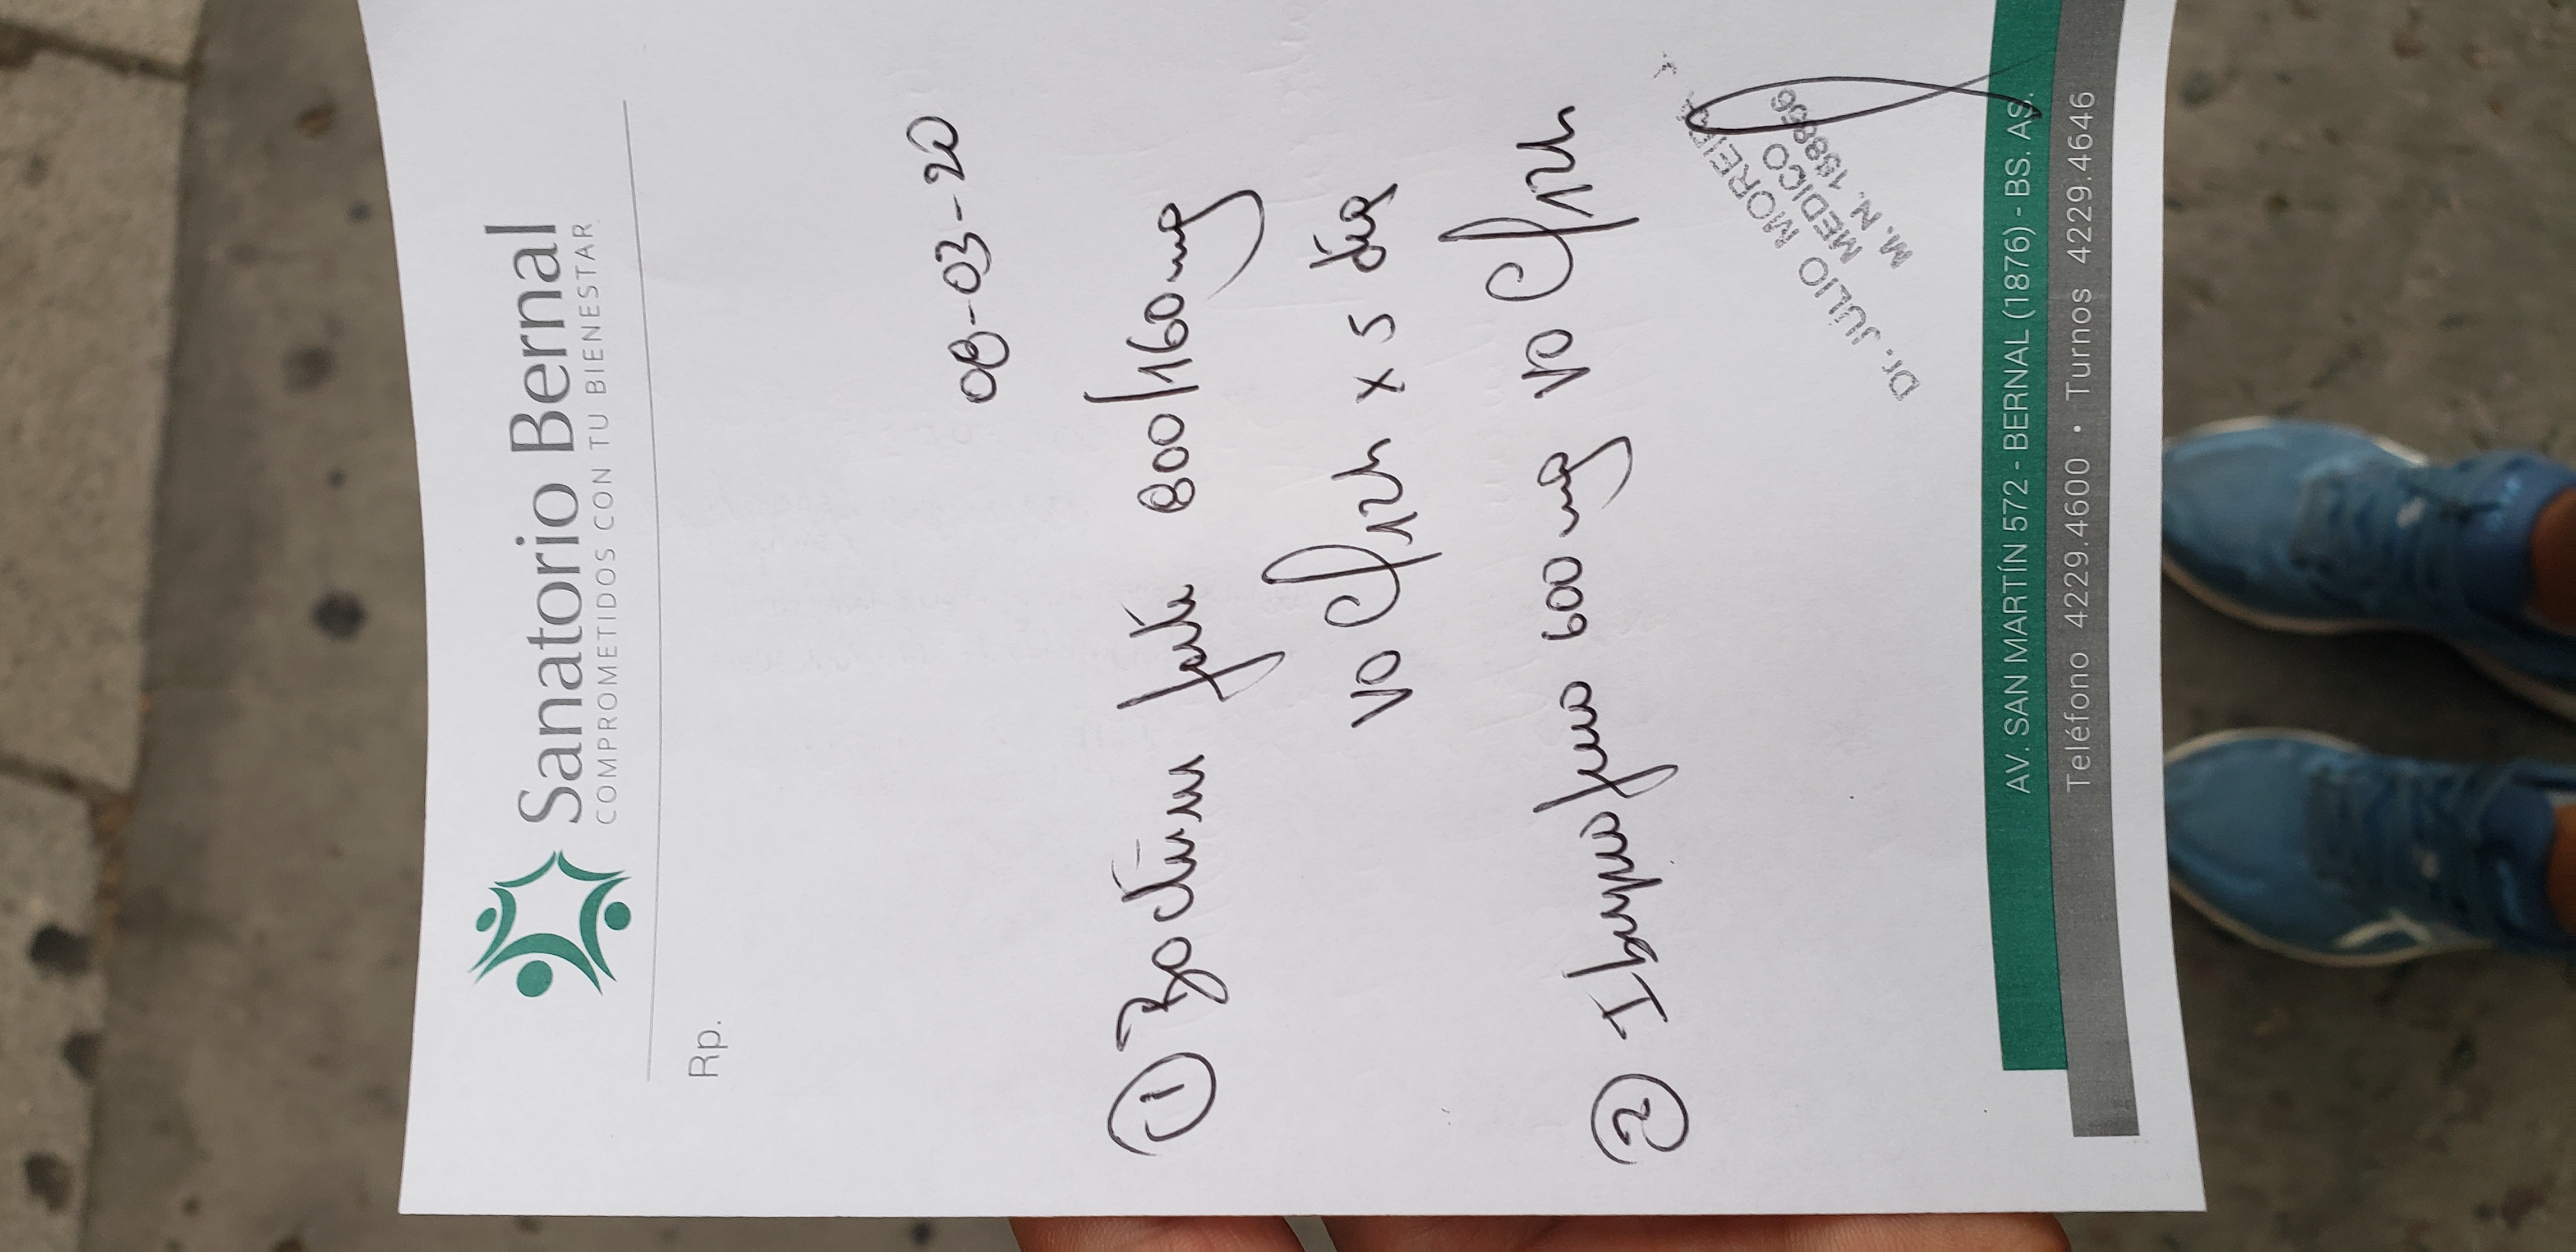 Sanatorio Bernal
COMPROMETIDOS CON TU BIENESTAR
Rp.
08-03-20
① Bactrim forte 800/160 mg
VO C/12h x 5 días
② Ibuprofeno 600 mg VO C/12h
Dr. JULIO MOREIRA
MEDICO
M.N.
AV. SAN MARTÍN 572 - BERNAL (1876) - BS. AS.
Teléfono 4229.4600 • Turnos 4229.4646